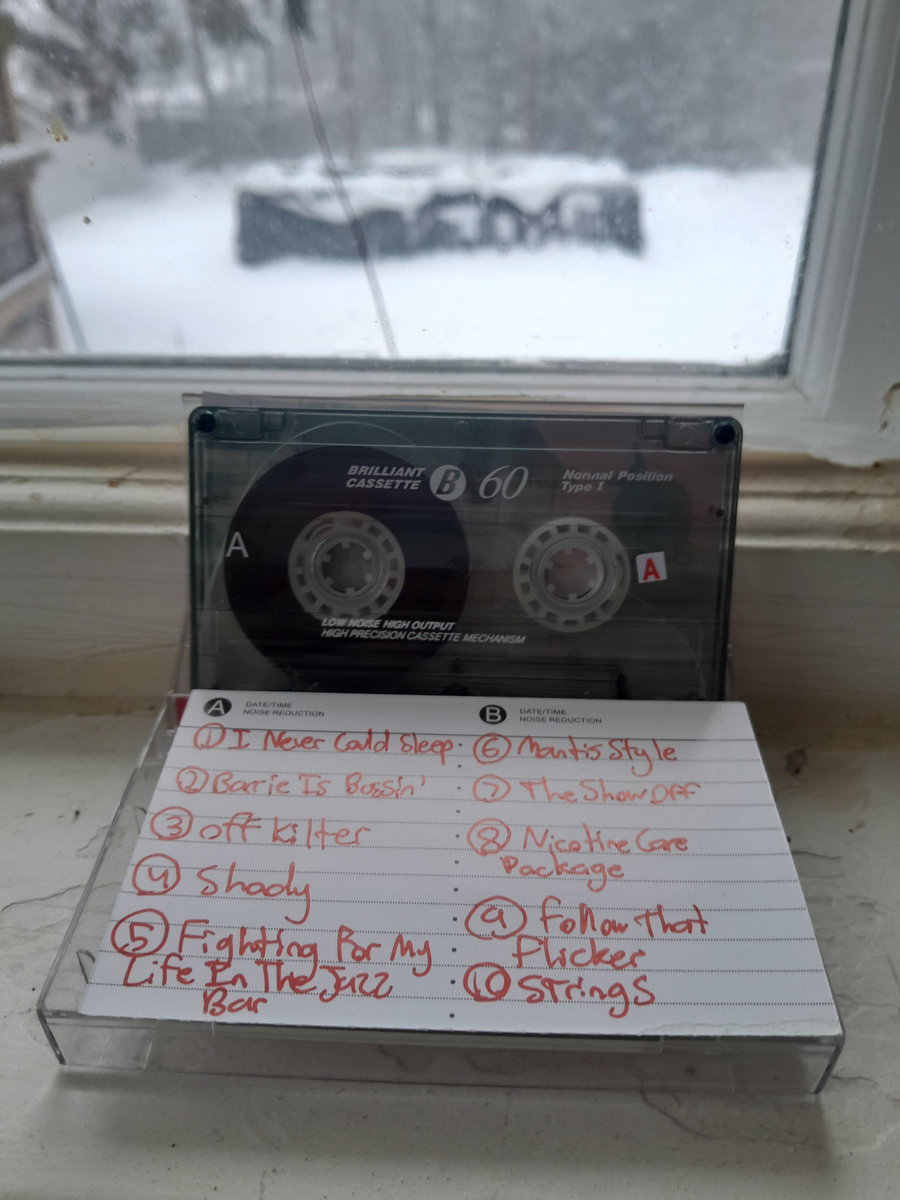 BRILLIANT
CASSETTE
B
60
Normal Position
Type I
A
A
LOW NOISE HIGH OUTPUT
HIGH PRECISION CASSETTE MECHANISM
A
DATE/TIME
NOISE REDUCTION
① I Never Could Sleep
② Barrie Is Bussin'
③ off kilter
④ Shady
⑤ Fighting For My
Life In The Jazz
Bar
B
DATE/TIME
NOISE REDUCTION
⑥ Mantis Style
⑦ The Show Off
⑧ Nicotine Care
Package
⑨ Follow That
Flicker
⑩ Strings